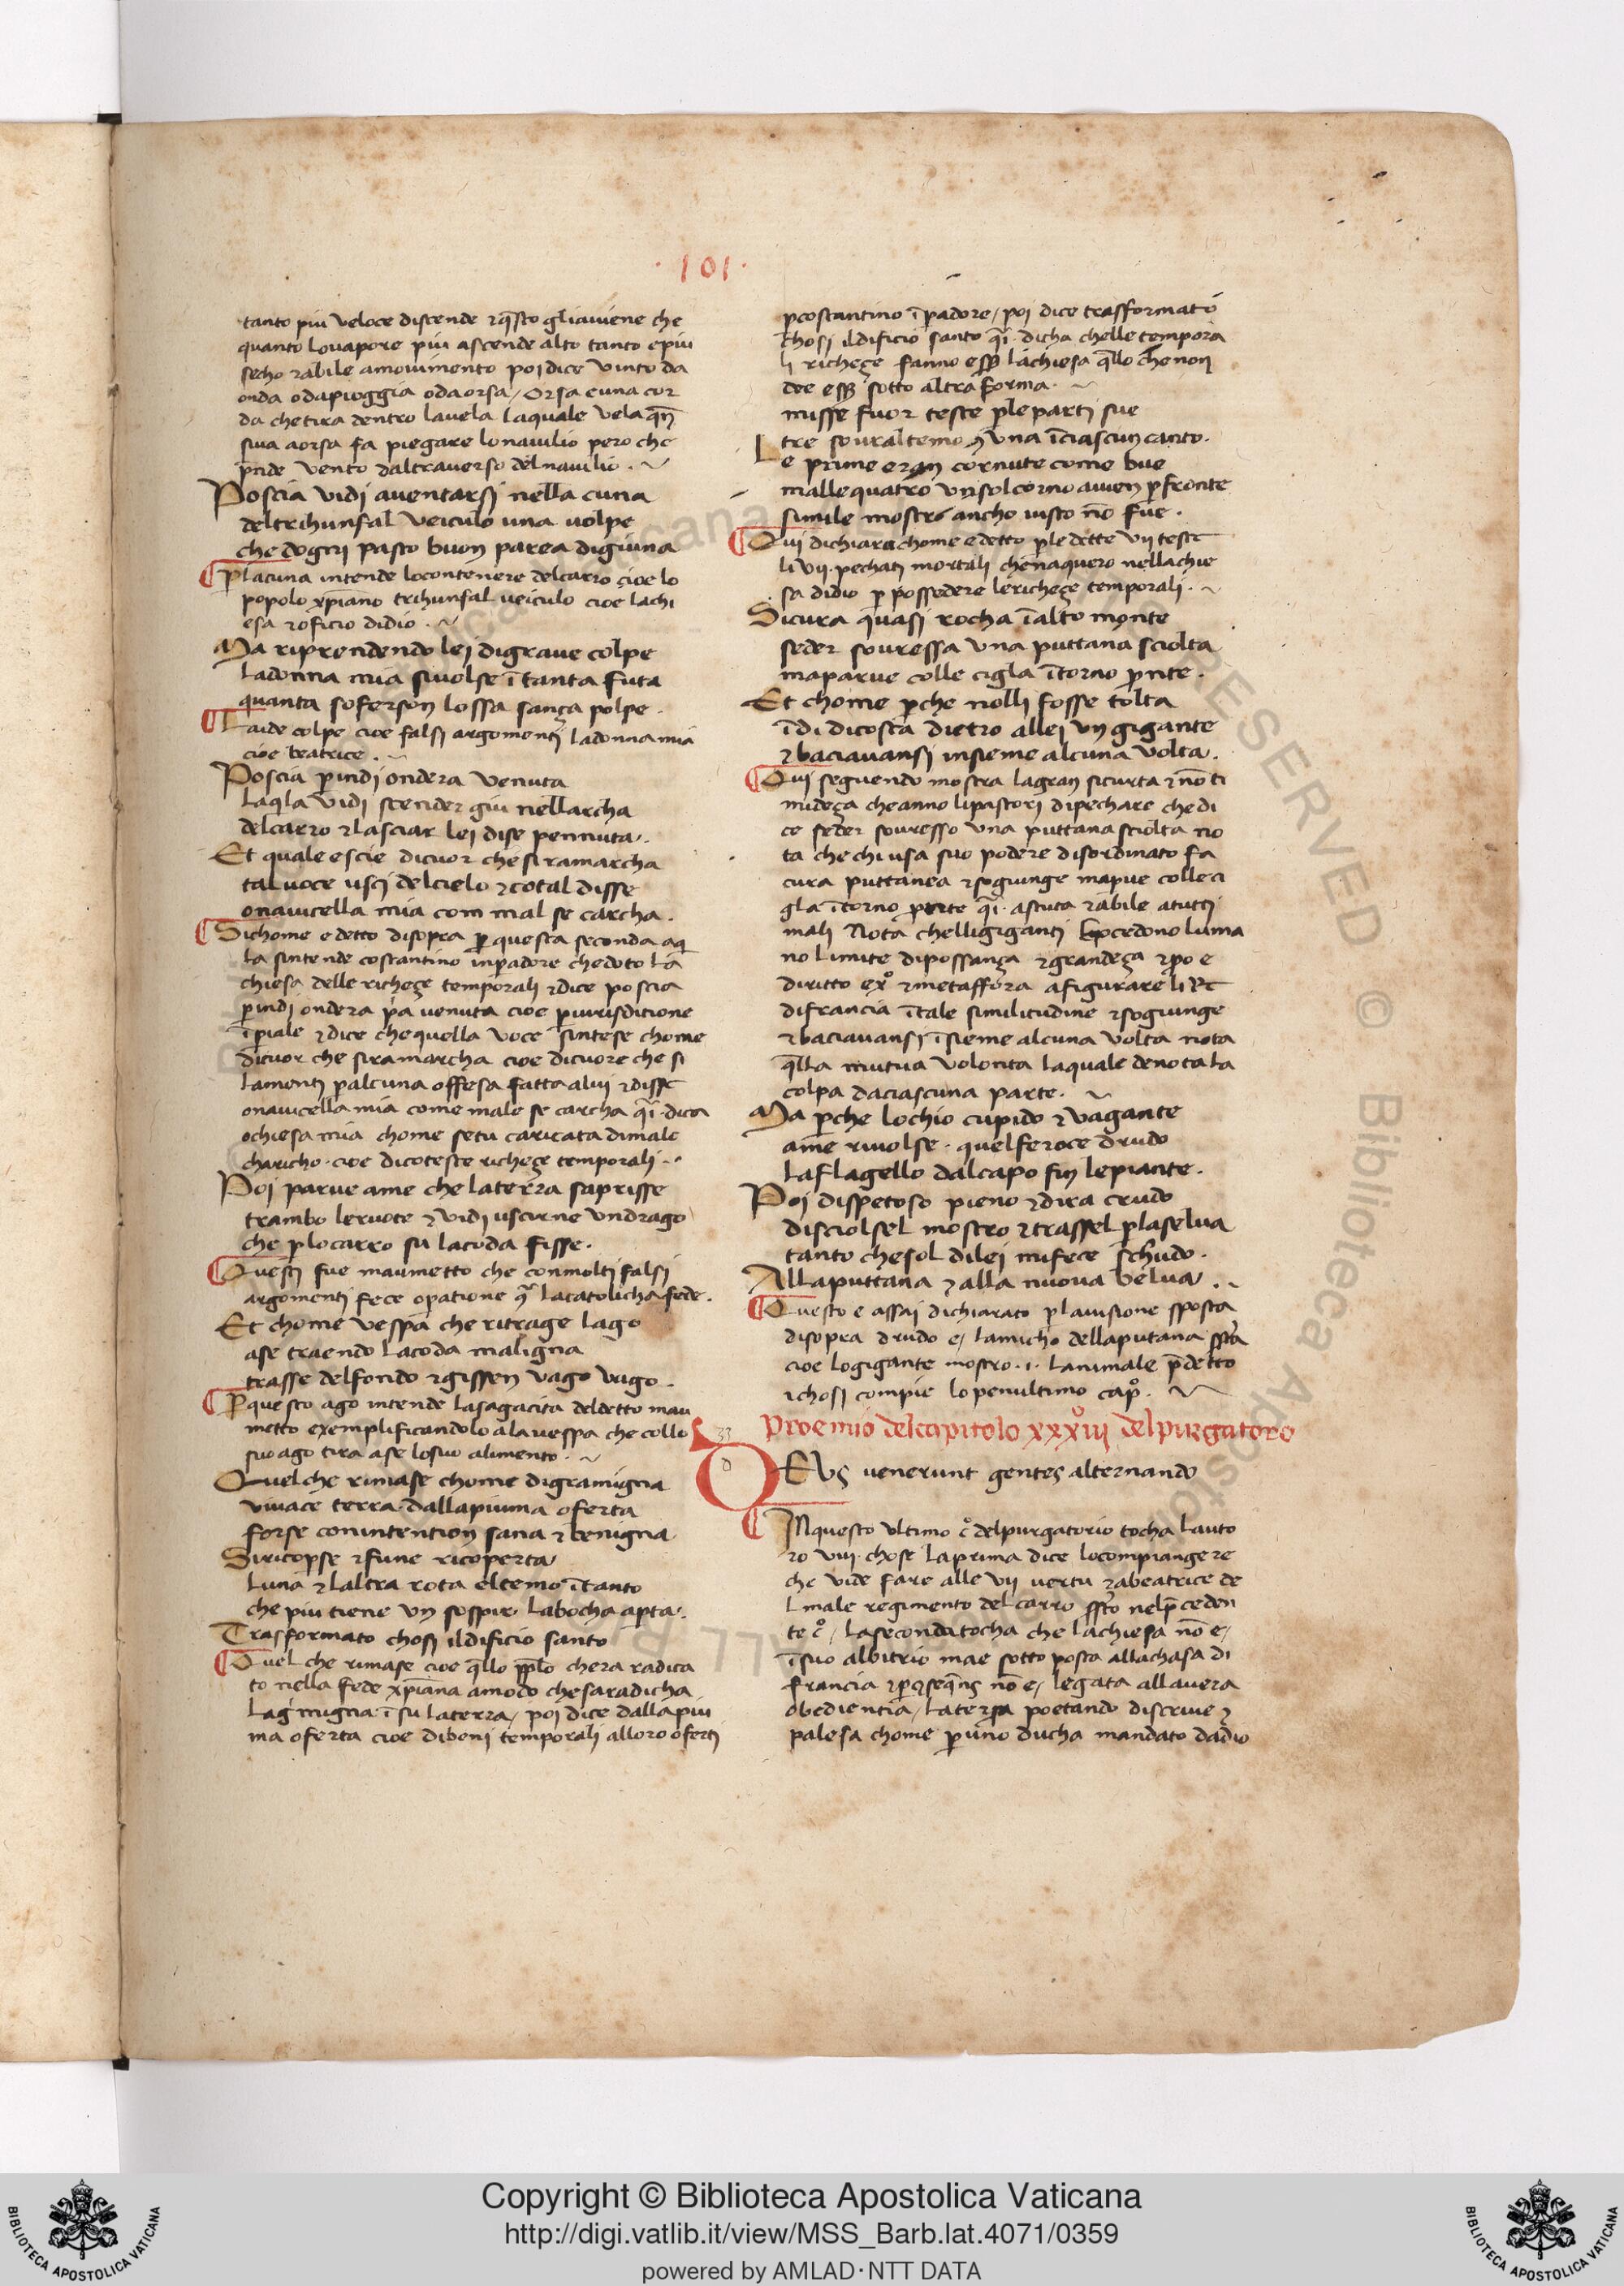 · 101 ·
tanto piu veloce discende ⁊ q̄sto gliaviene che
quanto lovapore piu ascende alto tanto epiu
secho ⁊abile amovimento poi dice vinto da
onda odapioggia odaorsa / orsa e una cor
da chetira dentro lavela laquale vela qn̄
sua aorsa fa piegare lonavilio pero che
p̄nde vento daltraverso delnavilio . ~
Poscia vidi aventarsi nella cuna
deltrihunfal veiculo una volpe
che dogni pasto buon parea digiuna
P̱ lacuna intende locontenere delcarro cioe lo
popolo xp̄iano trihunfal veiculo cioe lachi
esa ⁊ oficio didio . ~
Ma riprendendo lei digrave colpe
ladonna mia sivolse ī tanta futa
quanta soferson lossa sança polpe .
Laide colpe cioe falsi argomenti ladonna mia
cioe beatrice . ~
Poscia p̱indi ondera venuta
laq̄la vidi scender giu nellarcha
delcarro ⁊ lasciar lei dise pennuta .
Et quale escie dicuor che si ramarcha
tal voce usci delcielo ⁊ cotal disse
onavicella mia com mal se carcha .
Sichome e detto disopra p̱ questa seconda aq̄
la sintende costantino inp̱adore chedoto la
chiesa delle richeçe temporali ⁊ dice poscia
p̱indi ondera p̄a venuta cioe p̱iurisditione
īp̱iale ⁊ dice chequella voce sintese chome
dicuor che siramarcha cioe dicuore che si
lamenti p̱alcuna offesa fatta alui ⁊ disse
onavicella mia come male se carcha q̄i · dica
ochiesa mia chome setu caricata dimale
charicho · cioe dicoteste richeçe temporali · ·
Poi parve ame che laterra saprisse
trambo leruote ⁊ vidi uscirne undrago
che p̱locarro su lacoda fisse .
Questi fue maumetto che conmolti falsi
argomenti fece op̱atione ɔ̄ lacatolicha fede .
Et chome vespa che ritrage lago
ase traendo lacoda maligna
trasse delfondo ⁊ gissen vago vago .
P̱ questo ago intende lasagacita deldetto mau
metto exemplificandolo ala vespa che collo
suo ago tira ase losuo alimento . ~
Quel che rimase chome digramigna
vivace terra dallapiuma oferta
forse conintention sana ⁊ benigna
Siricop̱se ⁊ fune ricoperta
luna ⁊ laltra rota eltemo ītanto
che piu tiene un sospir labocha ap̱ta .
Trasformato chosi ildificio santo
Quel che rimase cioe q̄llo pp̄lo chera radica
to nella fede xp̄iana amodo chesaradicha
lagmigna ī su laterra / poi dice dallapiu
ma oferta cioe diboni temporali alloro oferti
p̱costantino īp̱adore / poi dice trasformato
chosi ildificio santo q̄i · dicha chelle tempora
li richeçe fanno ess̱ lachiesa q̄llo che non
dee ess̱ sotto altra forma . ~
misse fuor teste p̱le parti sue
tre sovraltemo ⁊ una īciascun canto .
Le prime eran cornute come bue
malle quatro unsol corno avien p̱fronte
simile mostro ancho visto nō fue .
Qui dichiara chome e detto p̱le dette vii teste
li vii · pechati mortali chenaquero nellachie
sa didio p̱ possedere lericheçe temporali . ~
Sicura quasi rocha īalto monte
seder souressa una puttana sciolta
maparve colle cigla ītorno p̱nte .
Et chome p̱che nolli fosse tolta
īdi dicosta dietro allei un gigante
⁊ baciavansi insieme alcuna volta .
Qui seguendo mostra lagran sicurta ⁊ nō ti
mideça cheanno lipastori dipechare chedi
ce seder souresso una puttana sciolta no
ta che chi usa suo podere disordinato fa
cura puttanea ⁊ sogiunge map̱ve colle ci
gla ītorno p̱onte q̄i · astuta ⁊ abile atutti
mali Nota chelligiganti exp̱cedono luma
no limite dipossança ⁊ grandeça ⁊ p̱o e
diritto ex̊ ⁊ metaffora afigurare li Re
difrancia ītale similitudine ⁊ sogiunge
⁊ baciavansi īsieme alcuna volta nota
q̄lla mutua volonta laquale denota la
colpa daciascuna parte . ~
Ma p̱che lochio cupido ⁊ vagante
ame rivolse · quel feroce drudo
la flagello dalcapo fin lepiante .
Poi dispetoso pieno ⁊ dira crudo
disciolsel mostro ⁊ trassel p̱laselva
tanto chesol dilei mifece schudo .
Allaputtana ⁊ alla nuova belva . ~
Questo e assai dichiarato p̱lavisione sposta
disopra drudo e / lamicho dellaputana ss̄ta
cioe logigante mostro · i · lanimale p̄detto
⁊ chosi compie lo penultimo cap̊ . ~
Proemio delcapitolo xxxiii̊ delpurgatoro
33
D
EUS venerunt gentes alternando
IN questo ultimo c̊ delpurgatorio tocha lauto
ro viii · chose laprima dice locompiangere
che vide fare alle vii vertu ⁊ abeatrice de
lmale regimento delcarro ss̄to nelp̄ceden
te c̊ / lasecondatocha che lachiesa nō e /
īsuo albitrio mae sotto posta allachasa di
francia ⁊ p̱ ɔseq̄ns nō e / legata allavera
obedientia / laterça poetando discrive ⁊
palesa chome p̱uno ducha mandato dadio
Copyright © Biblioteca Apostolica Vaticana
http://digi.vatlib.it/view/MSS_Barb.lat.4071/0359
powered by AMLAD·NTT DATA
BIBLIOTECA APOSTOLICA VATICANA
BIBLIOTECA APOSTOLICA VATICANA